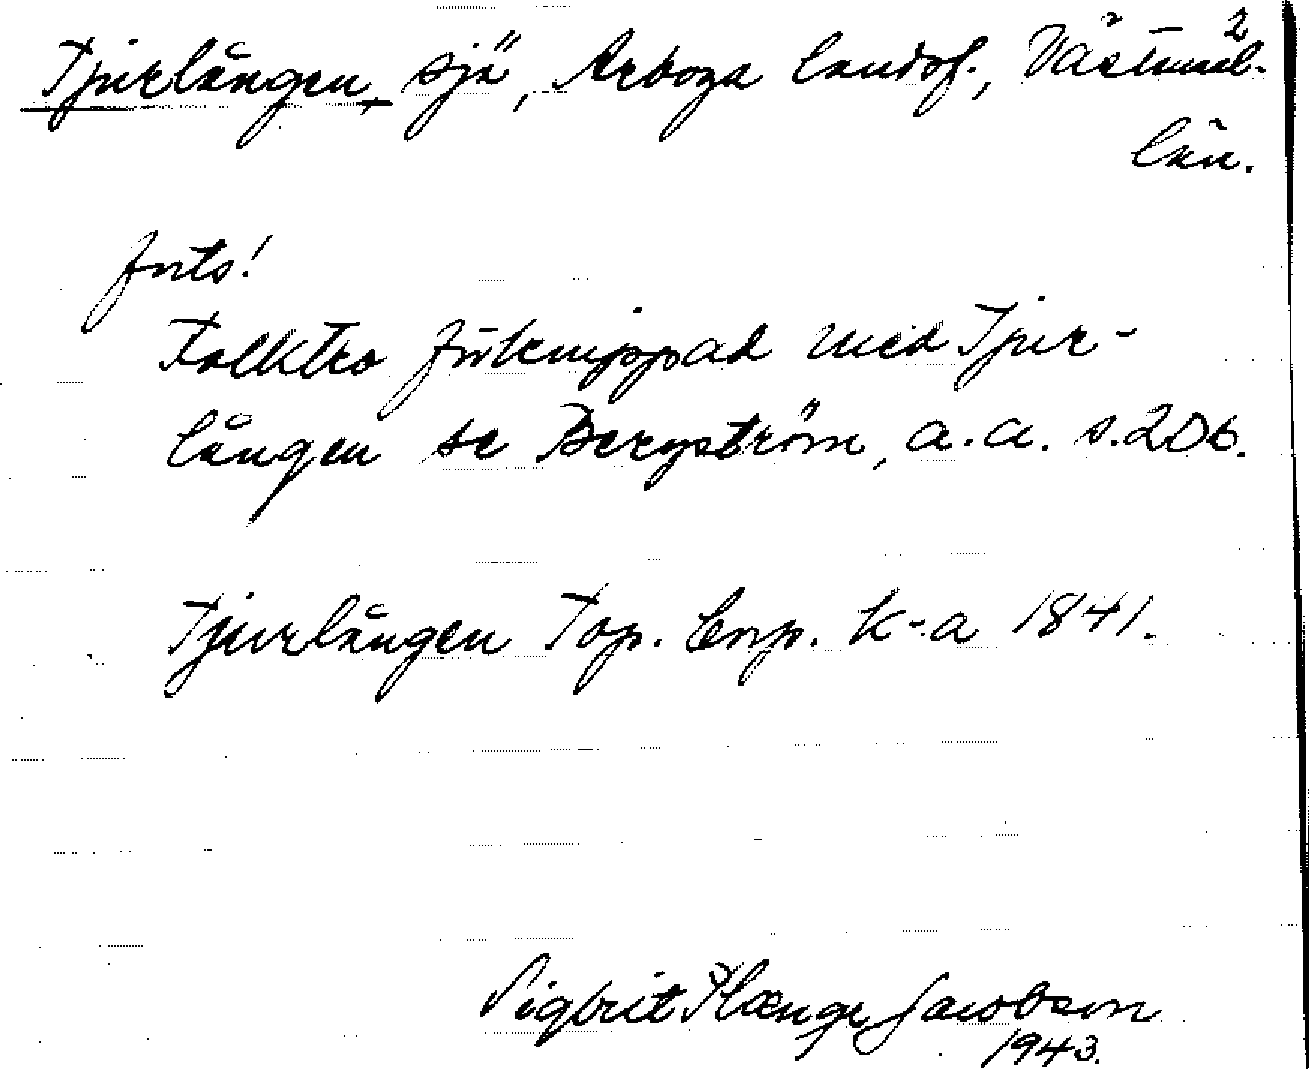 2
Tjurlången, sjö, Arboga landsf., Västmanl.
län.
forts!
Folktro förknippad med Tjur-
lången se Bergström, a.a. s.206.
Tjurlången Top. Corp. k-a 1841.
Sigbrit Plænge Jacobson
1943.